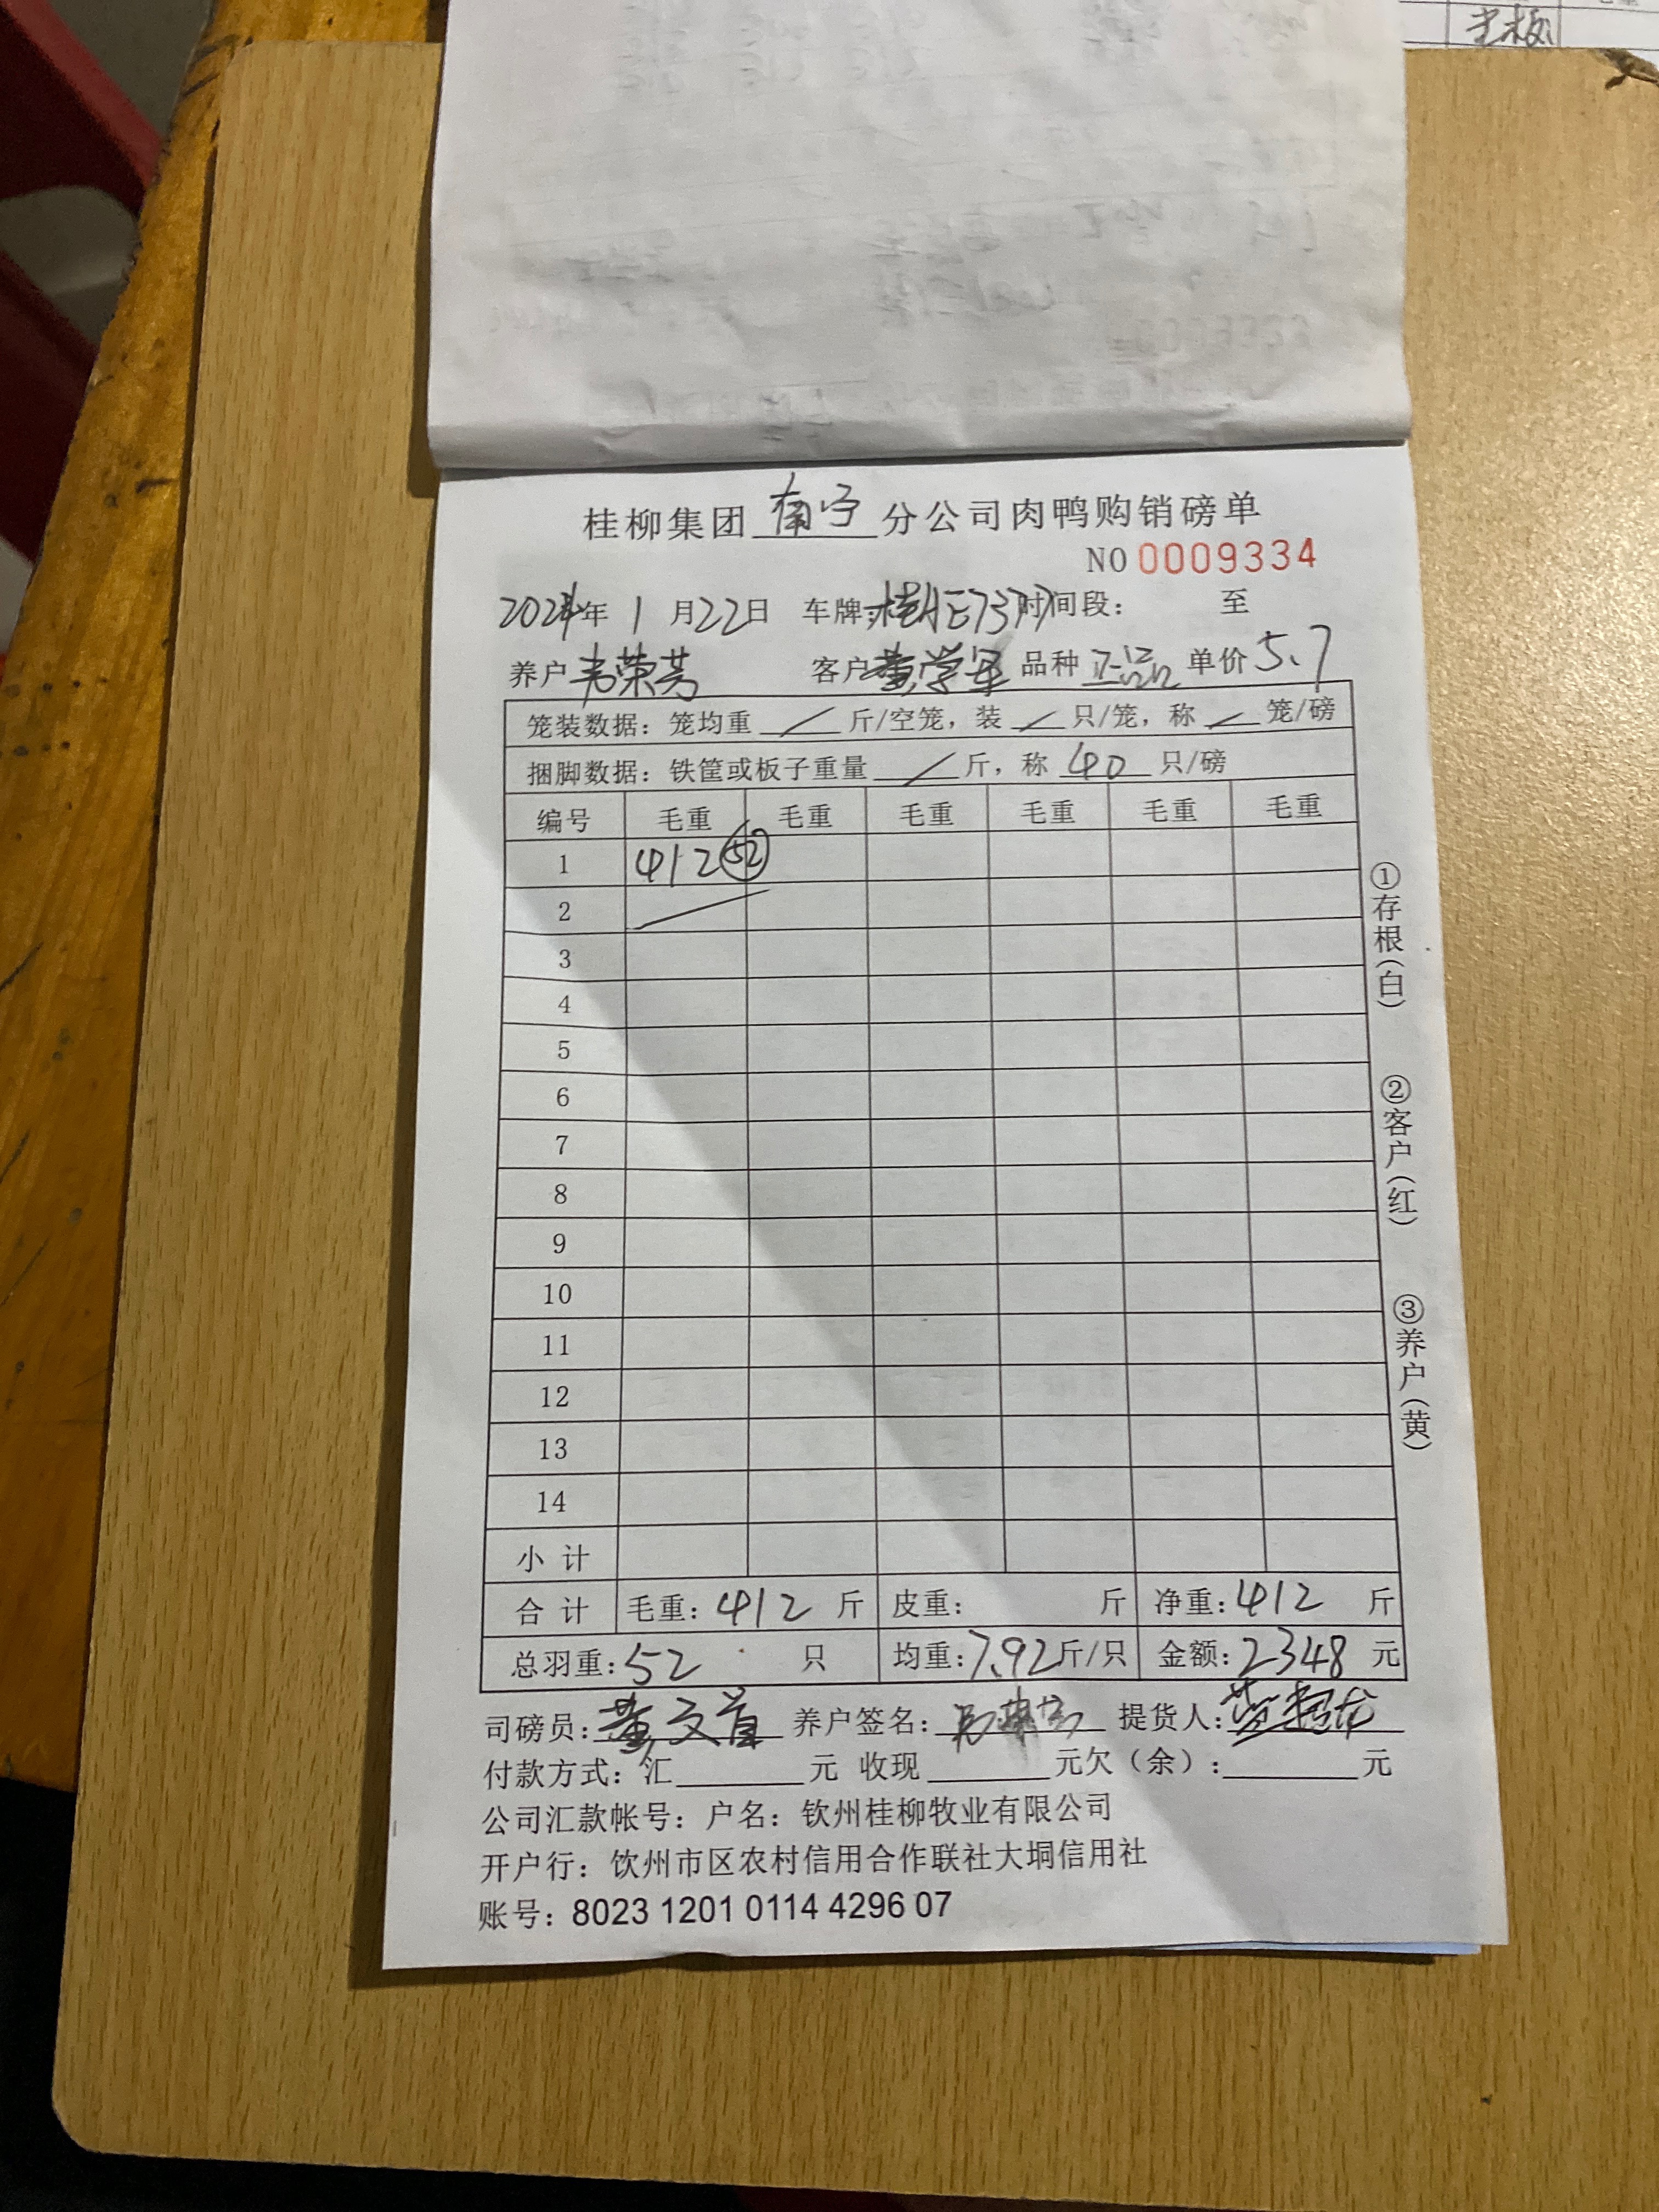 桂柳集团 南宁 分公司肉鸭购销磅单
NO 0009334
2024年 1 月22日 车牌: 时间段: 至
养户 韦荣芳 客户 黄学军 品种 正品 单价 5.7
笼装数据: 笼均重 / 斤/空笼, 装 / 只/笼, 称 / 笼/磅
捆脚数据: 铁筐或板子重量 / 斤, 称 40 只/磅
编号 毛重 毛重 毛重 毛重 毛重 毛重
1 412 52
2
3
4
5
6
7
8
9
10
11
12
13
14
小 计
合 计 毛重: 412 斤 皮重: 斤 净重: 412 斤
总羽重: 52 只 均重: 7.92 斤/只 金额: 2348 元
司磅员: 养户签名: 提货人:
付款方式: 汇 元 收现 元欠（余）: 元
公司汇款帐号: 户名: 钦州桂柳牧业有限公司
开户行: 钦州市区农村信用合作联社大垌信用社
账号: 8023 1201 0114 4296 07
①存根(白)
②客户(红)
③养户(黄)